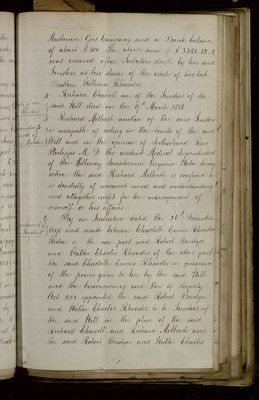 Masterine Gas Company and a Bank balance
of about £300 The above sum of £3381.12.1
was received after Probate by his said
Trustees as his share of the estate of his late
brother William Rhoades
2 Richard Chawell one of the Trustees of the
said Will died on the 9th March 1886
3 Richard Mellersh another of the said Trustees
is incapable of acting in the trusts of the said
Will and in the opinion of Sutherland Rees
Philipps M.D. the resident Medical Superintendent
of the Holloway Sanatorium Virginia Water Surrey
where the said Richard Mellersh is confined he
is decidedly of unsound mind and understanding
and altogether unfit for the management of
himself or his affairs
4 By an Indenture dated the December
and made between Charlotte Rhoades
Widow of the one part and Robert Bridger
and Walter Charles Rhoades of the other part
the said Charlotte Rhoades in pursuance
of the power given to her by the said Will
and the Conveyancing and Law of Property
Act 1881 appointed the said Robert Bridger
and Walter Charles Rhoades to be Trustees of
the said Will in the place of the said
Richard Chawell and Richard Mellersh and
the said Robert Bridger and Walter Charles